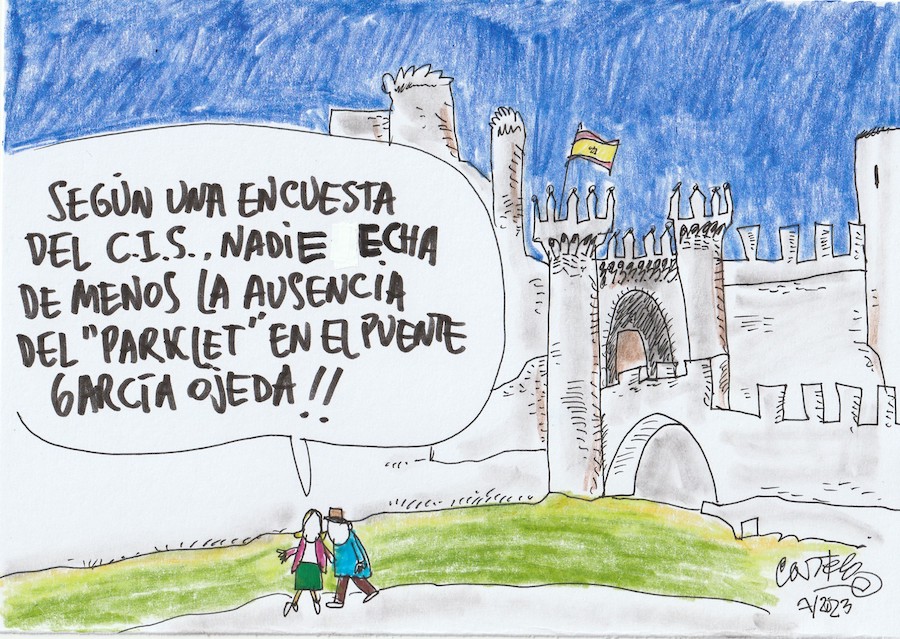 SEGÚN UNA ENCUESTA
DEL C.I.S., NADIE ECHA
DE MENOS LA AUSENCIA
DEL "PARKLET" EN EL PUENTE
GARCÍA OJEDA!!
7/2023